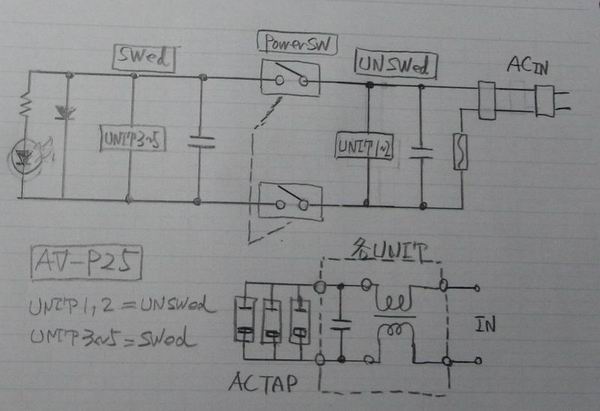 PowerSW
SWed
UNSWed
ACIN
UNIT3~5
UNIT1~2
AV-P25
各UNIT
UNIT1,2=UNSWed
UNIT3~5=SWed
IN
ACTAP